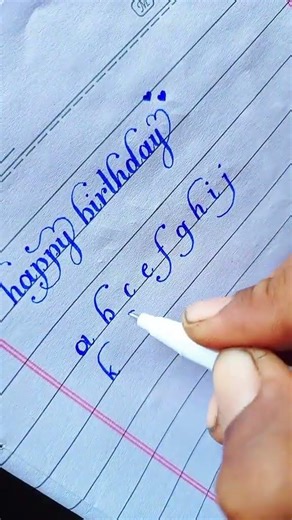 M
happy birthday
a b c e f g h i j
k